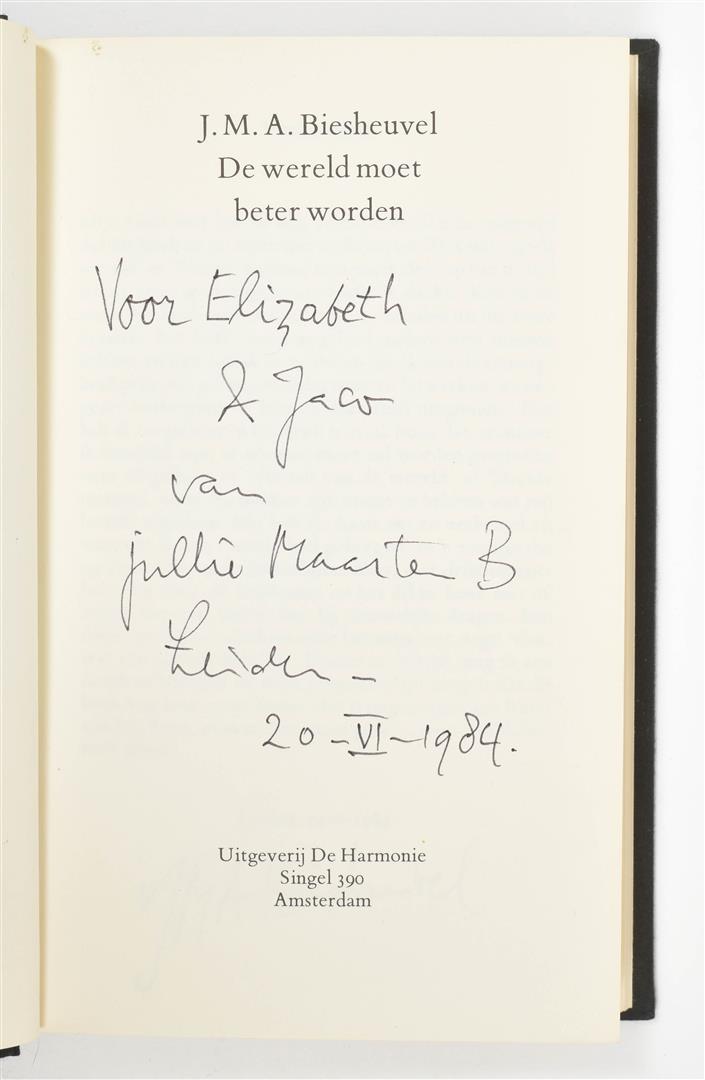 J. M. A. Biesheuvel
De wereld moet
beter worden
Voor Elizabeth
& Jaco
van
jullie Maarten B
Leiden –
20 – VI – 1984.
Uitgeverij De Harmonie
Singel 390
Amsterdam